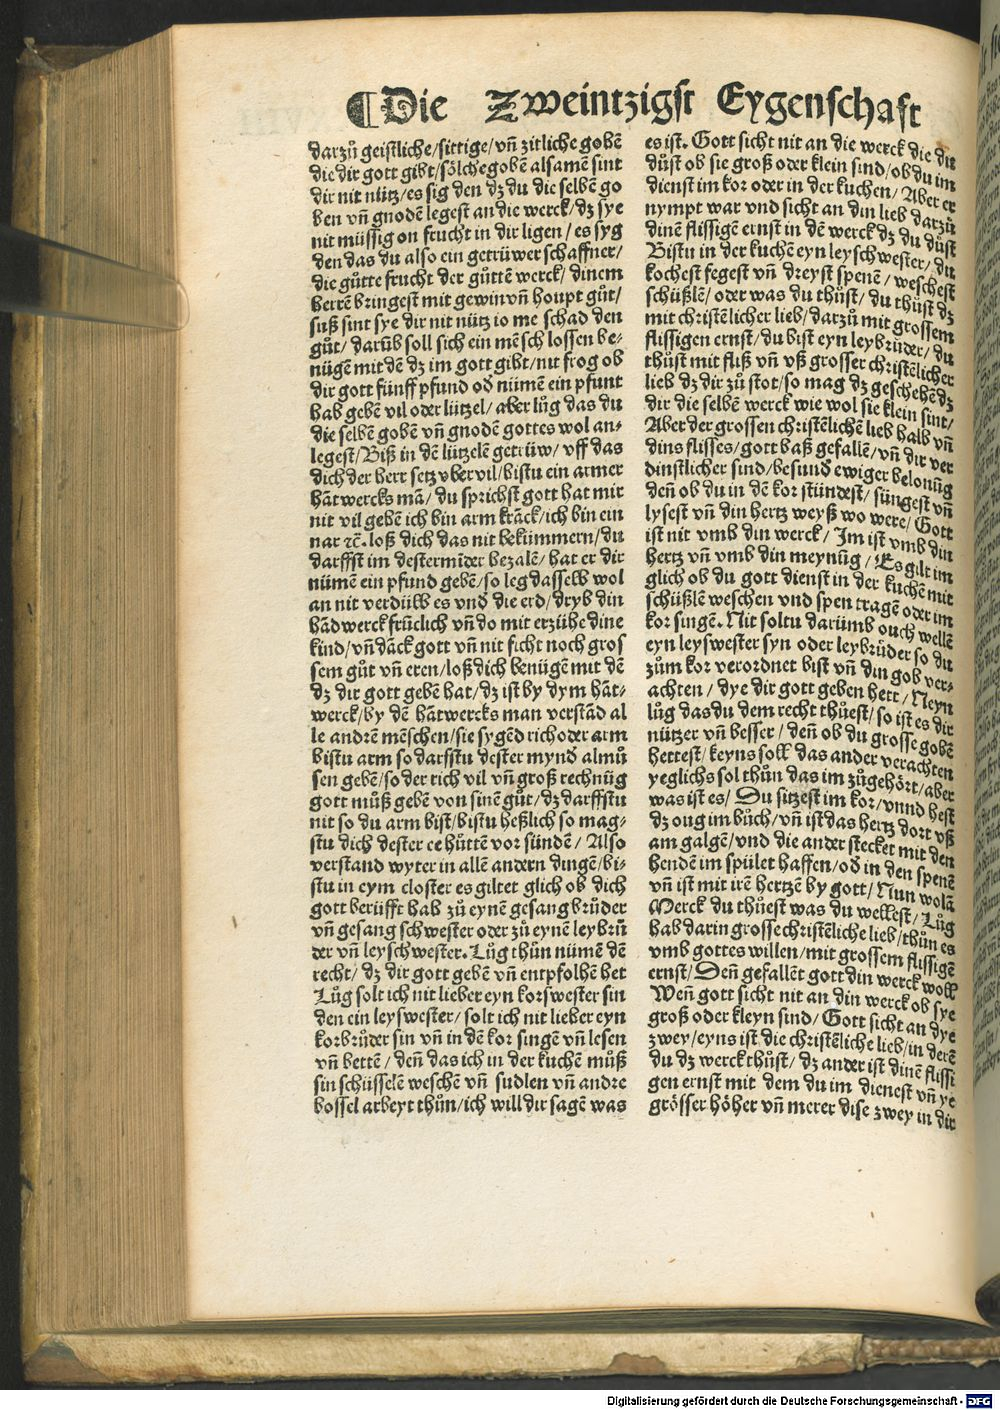 ¶Die Zweintzigst Eygenschaft
darzů geistliche/sittige/vñ zitliche gobẽ
die dir gott gibt/sölche gobẽ alsamẽ sint
dir nit nütz/es sig den dz du die selbẽ go
ben vñ gnodẽ legest an die werck/dz sye
nit müssig on frucht in dir ligen/es syg
den das du also ein getrüwer schaffner/
die gütte frucht der gůttẽ werck/dinem
herrẽ bringest mit gewin vñ houpt gůt/
suß sint sye dir nit nütz io me schad den
gůt/darũb soll sich ein mẽsch lossen be-
nügẽ mit dẽ dz im gott gibt/nit frog ob
dir gott fünff pfund od nümẽ ein pfunt
hab gebẽ vil oder lützel/aber lůg das du
die selbẽ gobẽ vñ gnodẽ gottes wol an-
legest/Biß in dẽ lützelẽ getrüw/vff das
dich der herr setz vber vil/bistu ein armer
hãtwercks mã/du sprichst gott hat mir
nit vil gebẽ ich bin arm krãck/ich bin ein
nar ꝛc̃. loß dich das nit bekümmern/du
darffst im destermĩder bezalẽ/hat er dir
nümẽ ein pfund gebẽ/so leg dasselb wol
an nit verdülb es vnd die erd/dryb din
hãdwerck frůclich vñ do mit erzühe dine
kind/vñ dãck gott vñ nit ficht noch gros
sem gůt vñ eren/loß dich benügẽ mit dẽ
dz dir gott gebẽ hat/dz ist by dym hãt-
werck/by dẽ hãtwercks man verstãd al
le andrẽ mẽschen/sie sygẽd rich oder arm
bistu arm so darfstu dester mynd almů
sen gebẽ/so der rich vil vñ groß rechnũg
gott můß gebẽ von sinẽ gůt/dz darffstu
nit so du arm bist/bistu heßlich so mag-
stu dich dester ee hůttẽ vor sündẽ/Also
verstand wyter in allẽ andern dingẽ/bi-
stu in eym closter es giltet glich ob dich
gott berüfft hab zů eynẽ gesang brůder
vñ gesang schwester oder zů eynẽ ley brů
der vñ ley schwester. Lůg thůn nümẽ dẽ
recht/dz dir gott gebẽ vñ entpfolhẽ het
Lůg solt ich nit lieber eyn korswester sin
den ein leyswester/solt ich nit lieber eyn
korbrůder sin vñ in dẽ kor singẽ vñ lesen
vñ bettẽ/deñ das ich in der kuchẽ můß
sin schüsselẽ weschẽ vñ sudlen vñ andre
bossel arbeyt thůn/ich will dir sagẽ was
es ist. Gott sicht nit an die werck die du
důst ob sie groß oder klein sind/ob du im
dienst im kor oder in der kuchen/Aber er
nympt war vnd sicht an din lieb darzů
dinẽ flissigẽ ernst in dẽ werck dz du důst
Bistu in der kuchẽ eyn leyschwester/du
kochest fegest vñ dreyst spenẽ/weschest
schüßlẽ/oder was du thůst/du thůst dz
mit christẽlicher lieb/darzů mit grossem
flissigen ernst/du bist eyn leybrůder/du
thůst mit fliß vñ vß grosser christẽlicher
lieb dz dir zů stot/so mag dz geschehẽ dz
dir die selbẽ werck wie wol sie klein sint/
Aber der grossen christẽlichẽ lieb halb vñ
dins flisses/gott baß gefallẽ/vñ dir ver
dinstlicher sind/besund ewiger belonũg
deñ ob du in dẽ kor stündest/süngest vñ
lysest vñ din hertz weyß wo were/Gott
ist nit vmb din werck/Im ist vmb din
hertz vñ vmb din meynũg/Es gilt im
glich ob du gott dienst in der kuchẽ mit
schüßlẽ weschen vnd spen tragẽ oder im
kor singẽ. Nit soltu darũmb ouch wellẽ
eyn leyswester syn oder leybrůder so du
zům kor verordnet bist vñ din gob ver-
achten/dye dir gott geben hett/Neyn
lůg das du dem recht thůest/so ist es dir
nützer vñ besser/deñ ob du grosse gobẽ
hettest/keyns soll das ander verachten
yeglichs sol thůn das im zůgehört/aber
was ist es/Du sitzest im kor/vnnd hest
dz oug im bůch/vñ ist das hertz dort vß
am galgẽ/vnd die ander stecket mit den
hendẽ im spůlet haffen/od in den spenẽ
vñ ist mit irẽ hertzẽ by gott/Nun wolã
Merck du thůest was du wellest/Lůg
hab darin grosse christẽliche lieb/thůn es
vmb gottes willen/mit grossem flissigẽ
ernst/Deñ gefallẽt gott din werck woll
Weñ gott sicht nit an din werck ob sye
groß oder kleyn sind/Gott sicht an dye
zwey/eyns ist die christẽliche lieb/in derẽ
du dz werck thůst/dz ander ist dinẽ flissi
gen ernst mit dem du im dienest vñ ye
grösser höher vñ merer dise zwey in dir
Digitalisierung gefördert durch die Deutsche Forschungsgemeinschaft - DFG